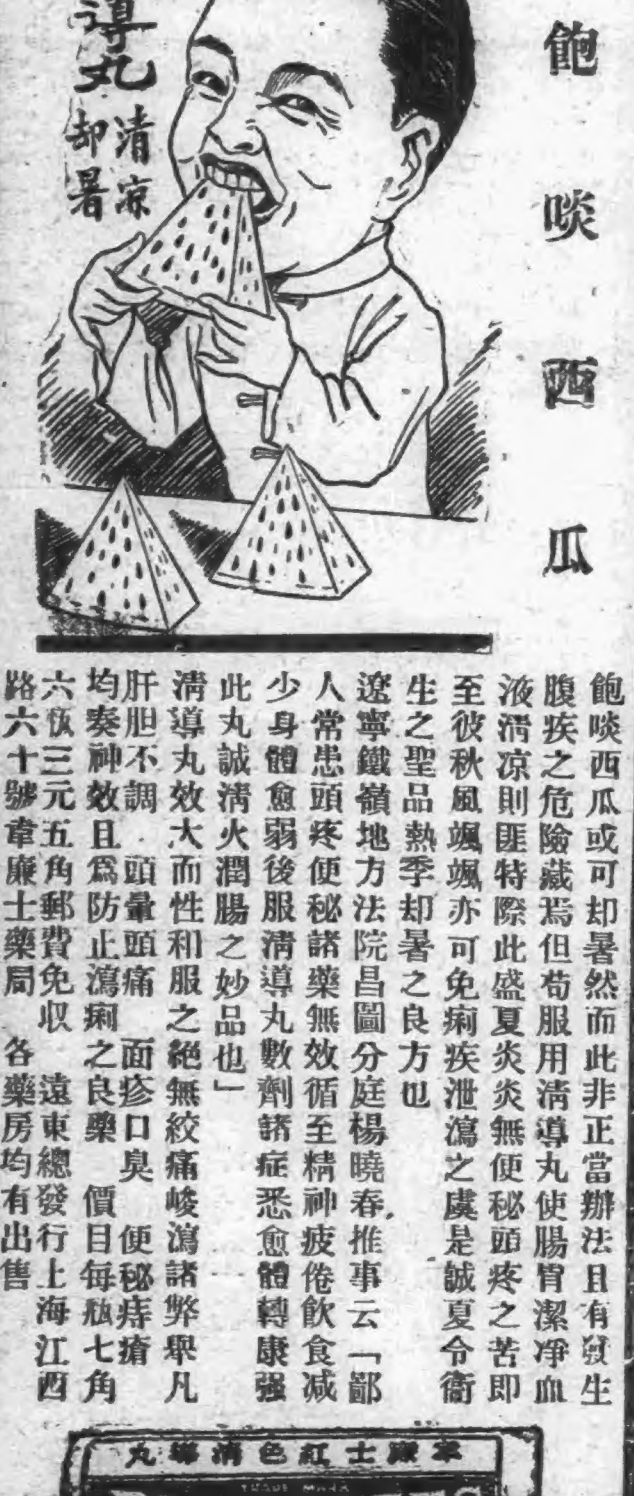 飽啖西瓜
導丸
清凉
却暑
飽啖西瓜或可却暑然而此非正當辦法且有發生
腹疾之危險藏焉但苟服用清導丸使腸胃潔凈血
液清凉則匪特際此盛夏炎炎無便秘頭疼之苦即
至彼秋風颯颯亦可免痢疾泄瀉之虞是誠夏令衛
生之聖品熱季却暑之良方也
遼寧鐵嶺地方法院昌圖分庭楊曉春推事云「鄙
人常患頭疼便秘諸藥無效循至精神疲倦飲食减
少身體愈弱後服清導丸數劑諸症悉愈體轉康强
此丸誠清火潤腸之妙品也」
清導丸效大而性和服之絕無絞痛峻瀉諸弊舉凡
肝胆不調 頭暈頭痛 面疹口臭 便秘痔瘡
均奏神效且爲防止瀉痢之良藥 價目每瓶七角
六瓶三元五角郵費免収 遠東總發行上海江西
路六十號韋廉士藥局 各藥房均有出售
韋廉士紅色清導丸
TRADE MARK